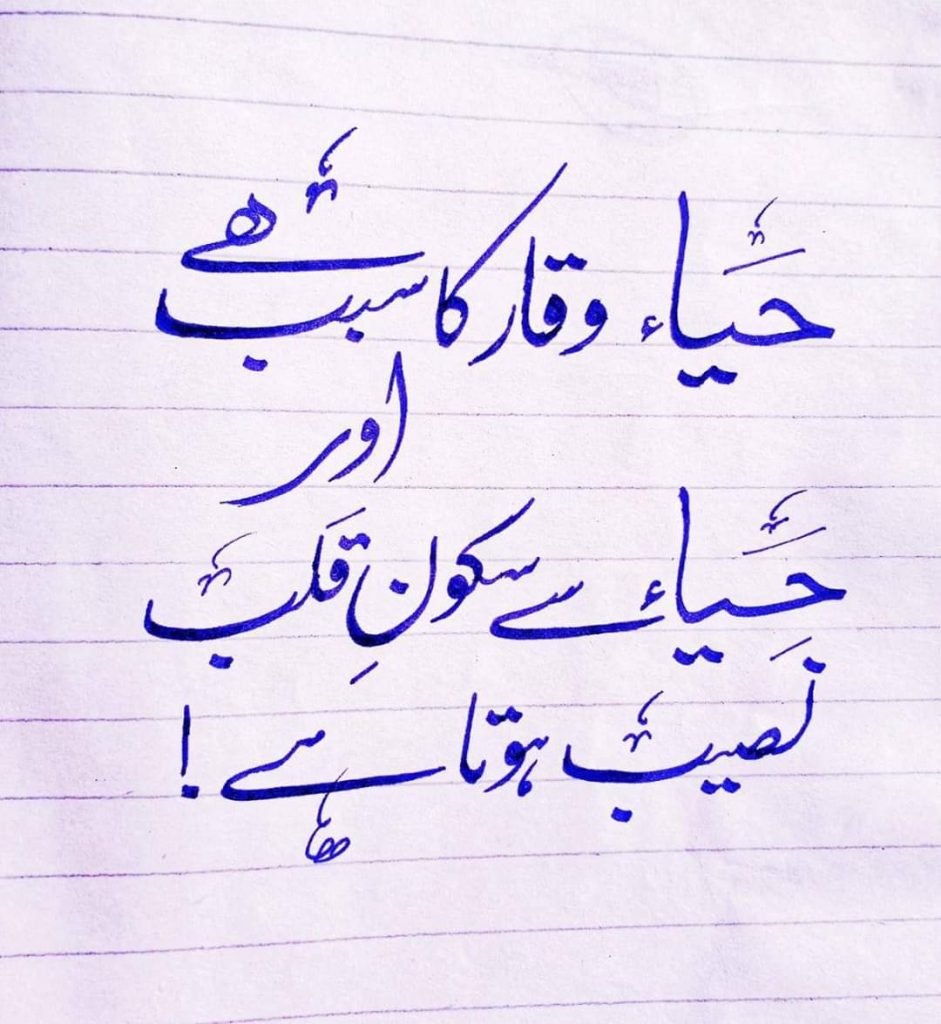 حَیاء وقار کا سبب ھے
اور
حَیِاء سے سکونِ قَلب
نصیب ہوتا ہے!